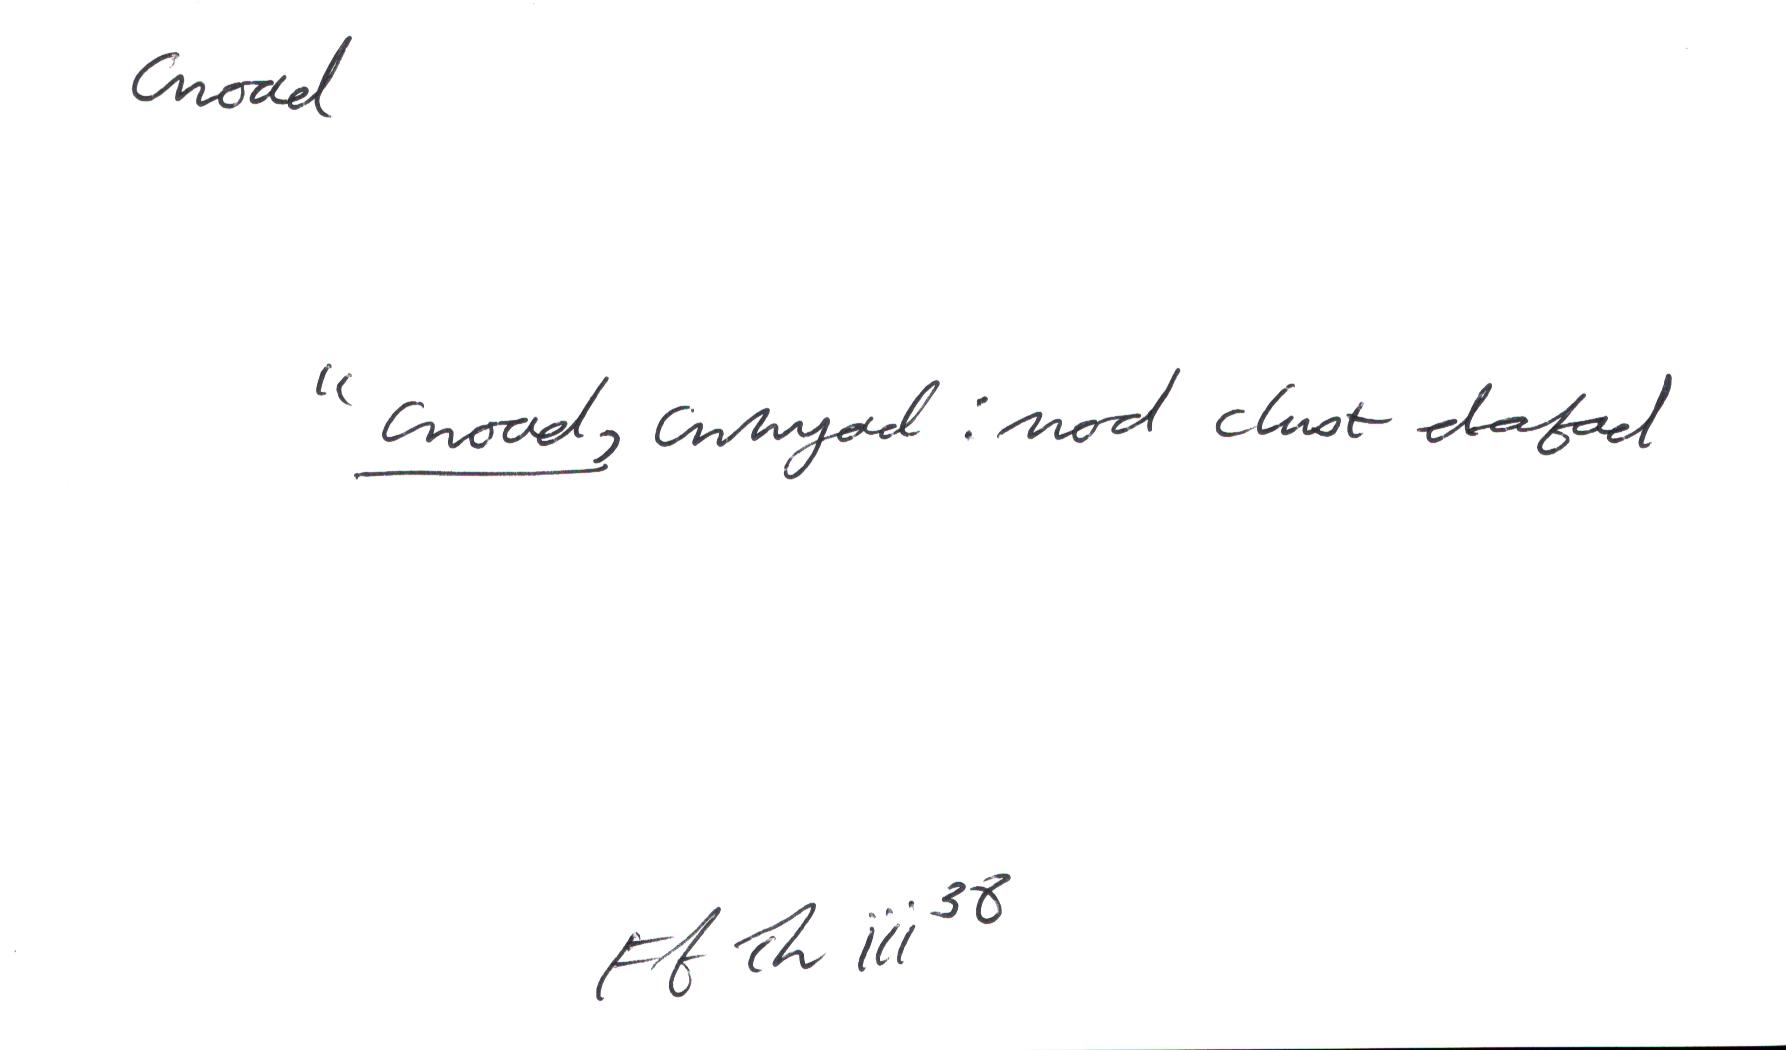 Cnoad
" cnoad, cnhyad : nod clust dafad
Ff Th iii 38